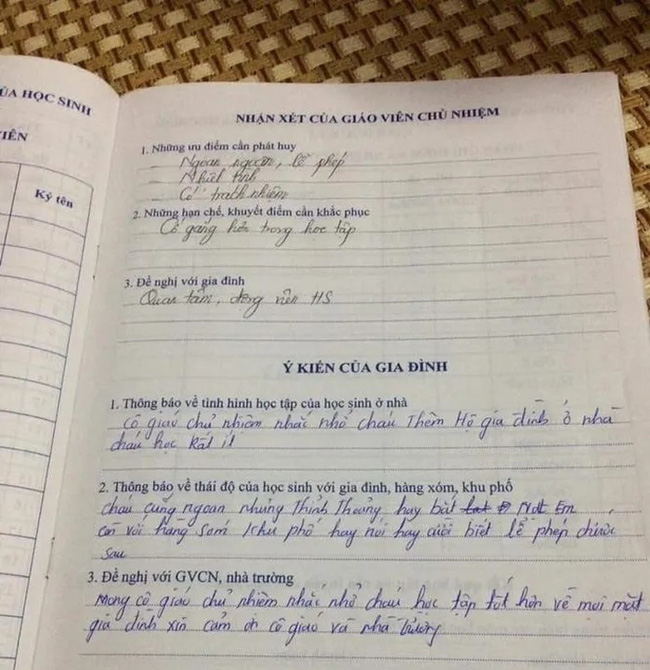 ỦA HỌC SINH
IÊN
Ký tên
NHẬN XÉT CỦA GIÁO VIÊN CHỦ NHIỆM
1. Những ưu điểm cần phát huy
Ngoan ngoãn, lễ phép
Nhiệt tình
Có trách nhiệm
2. Những hạn chế, khuyết điểm cần khắc phục
Cố gắng hơn trong học tập
3. Đề nghị với gia đình
Quan tâm, động viên HS
Ý KIẾN CỦA GIA ĐÌNH
1. Thông báo về tình hình học tập của học sinh ở nhà
Cô giáo chủ nhiệm nhắc nhở cháu Thêm Hộ gia đình ở nhà
cháu học Rất ít
2. Thông báo về thái độ của học sinh với gia đình, hàng xóm, khu phố
cháu cũng ngoan nhưng Thỉnh Thoảng hay bắt Nạt Em,
còn với hàng Sóm khu phố hay nói hay cười biết lễ phép chước
sau
3. Đề nghị với GVCN, nhà trường
Mong cô giáo chủ nhiệm nhắc nhở cháu học tập tốt hơn về mọi mặt
gia đình xin cảm ơn cô giáo và nhà trường